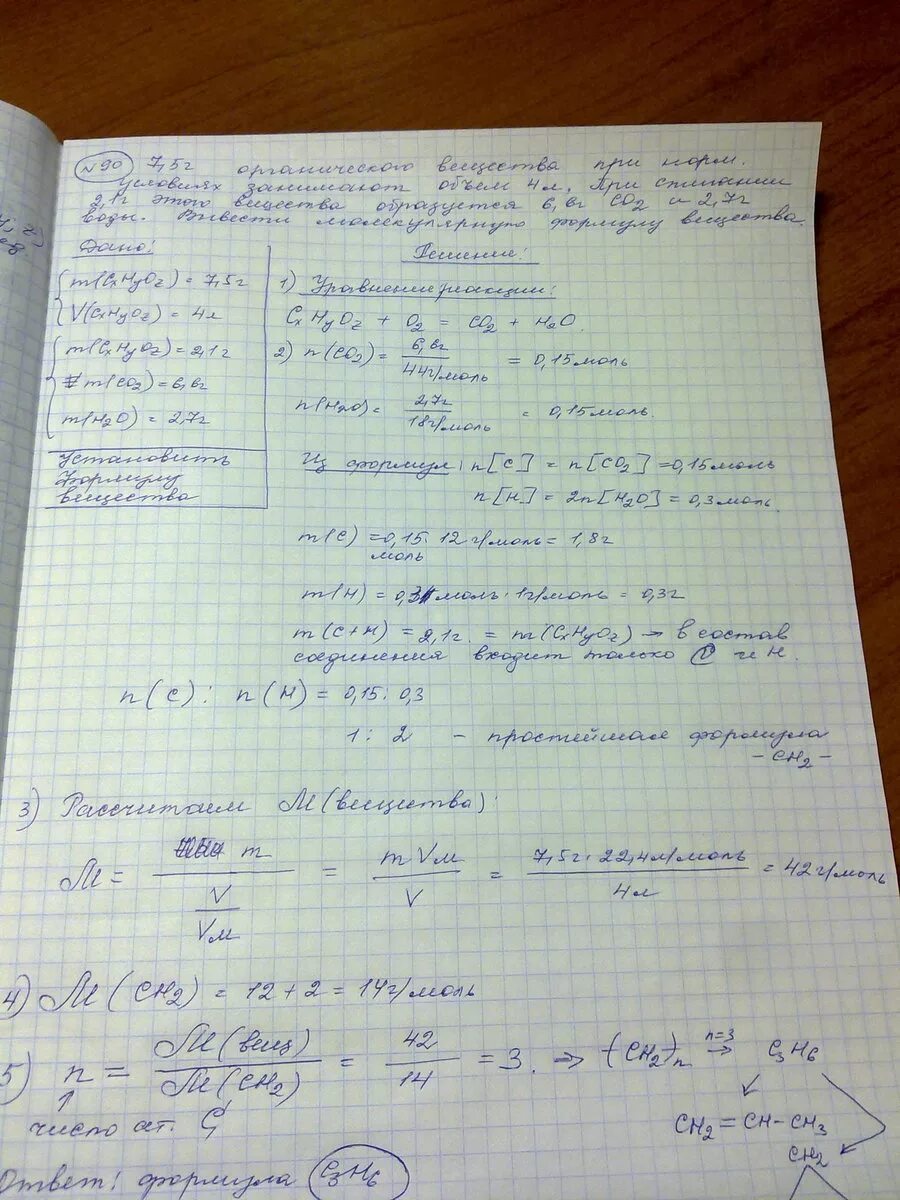 №90 7,5г органического вещества при норм.
условиях занимают объем 4л. При сгорании
2,1г этого вещества образуется 6,6г CO2 и 2,7г
воды. Вывести молекулярную формулу вещества.
Дано:
m(CxHyOz) = 7,5г
V(CxHyOz) = 4л
m(CxHyOz) = 2,1г
m(CO2) = 6,6г
m(H2O) = 2,7г
Установить
формулу
вещества
Решение:
1) Уравнение реакции:
CxHyOz + O2 = CO2 + H2O
2) n(CO2) = 6,6г / 44г/моль = 0,15моль
n(H2O) = 2,7г / 18г/моль = 0,15моль.
Из формул: n[C] = n[CO2] = 0,15моль
n[H] = 2n[H2O] = 0,3моль.
m(C) = 0,15 моль · 12г/моль = 1,8г
m(H) = 0,3моль · 1г/моль = 0,3г
m(C+H) = 2,1г. = m(CxHyOz) → в состав
соединения входит только C и H.
n(C) : n(H) = 0,15 : 0,3
1 : 2 - простейшая формула
-CH2-
3) Рассчитаем M(вещества):
M = m / (V / Vм) = m Vм / V = 7,5г · 22,4л/моль / 4л = 42г/моль
4) M(CH2) = 12 + 2 = 14г/моль
5) n = M(вещ) / M(CH2) = 42 / 14 = 3. ⇒ (CH2)n n=3 → C3H6
↑
число ат. C
CH2 = CH - CH3
CH2
Ответ: формула C3H6